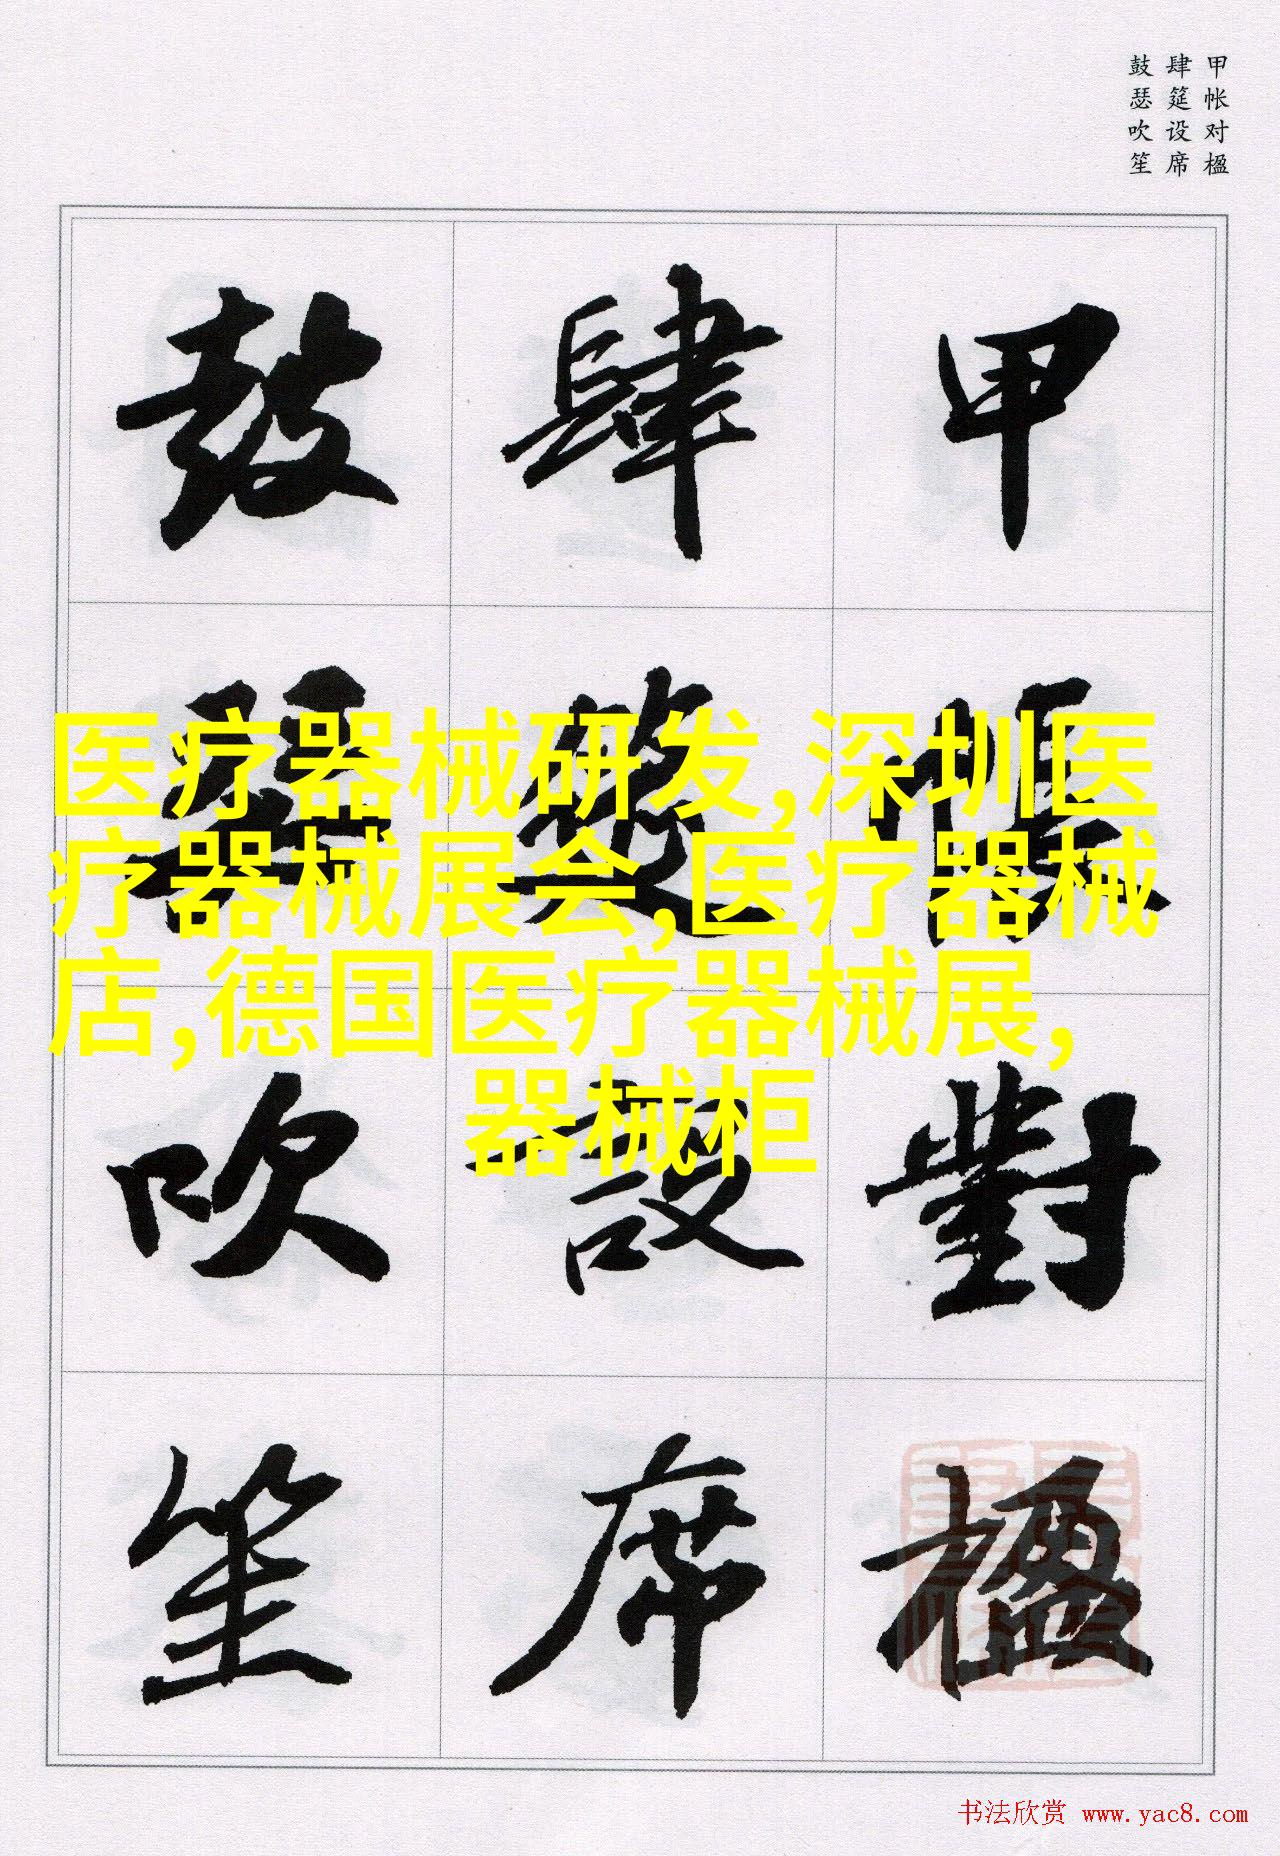 甲帐对楹
肆筵设席
鼓瑟吹笙
甲帳對楹
肆筵設席
鼓瑟吹笙
医疗器械研发,深圳医
疗器械展会,医疗器械
店,德国医疗器械展,
器械柜
书法欣赏 www.yac8.com